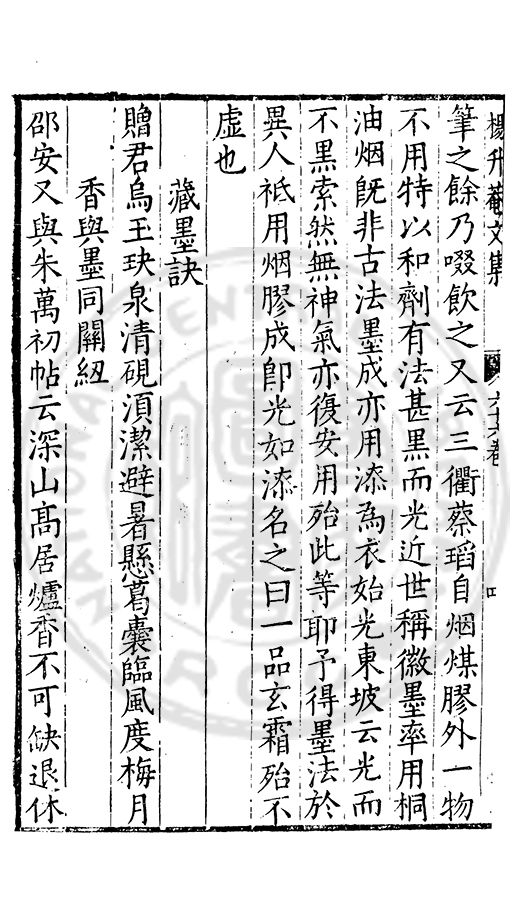 楊升菴文集 六十六卷
筆之餘乃啜飲之又云三衢蔡瑫自烟煤膠外一物
不用特以和劑有法甚黑而光近世稱徽墨率用桐
油烟旣非古法墨成亦用漆為衣始光東坡云光而
不黑索然無神氣亦復安用殆此等耶予得墨法於
異人祗用烟膠成卽光如漆名之曰一品玄霜殆不
虛也
藏墨訣
贈君烏玉玦泉清硯湏潔避暑懸葛囊臨風度梅月
香與墨同關紐
邵安又與朱萬初帖云深山髙居爐香不可缺退休